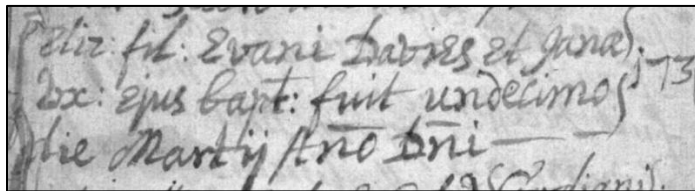 Eliz: fil: Evani Davies et Janæ
Ux: ejus bapt: fuit undecimo 173
die Martij Año Dñi